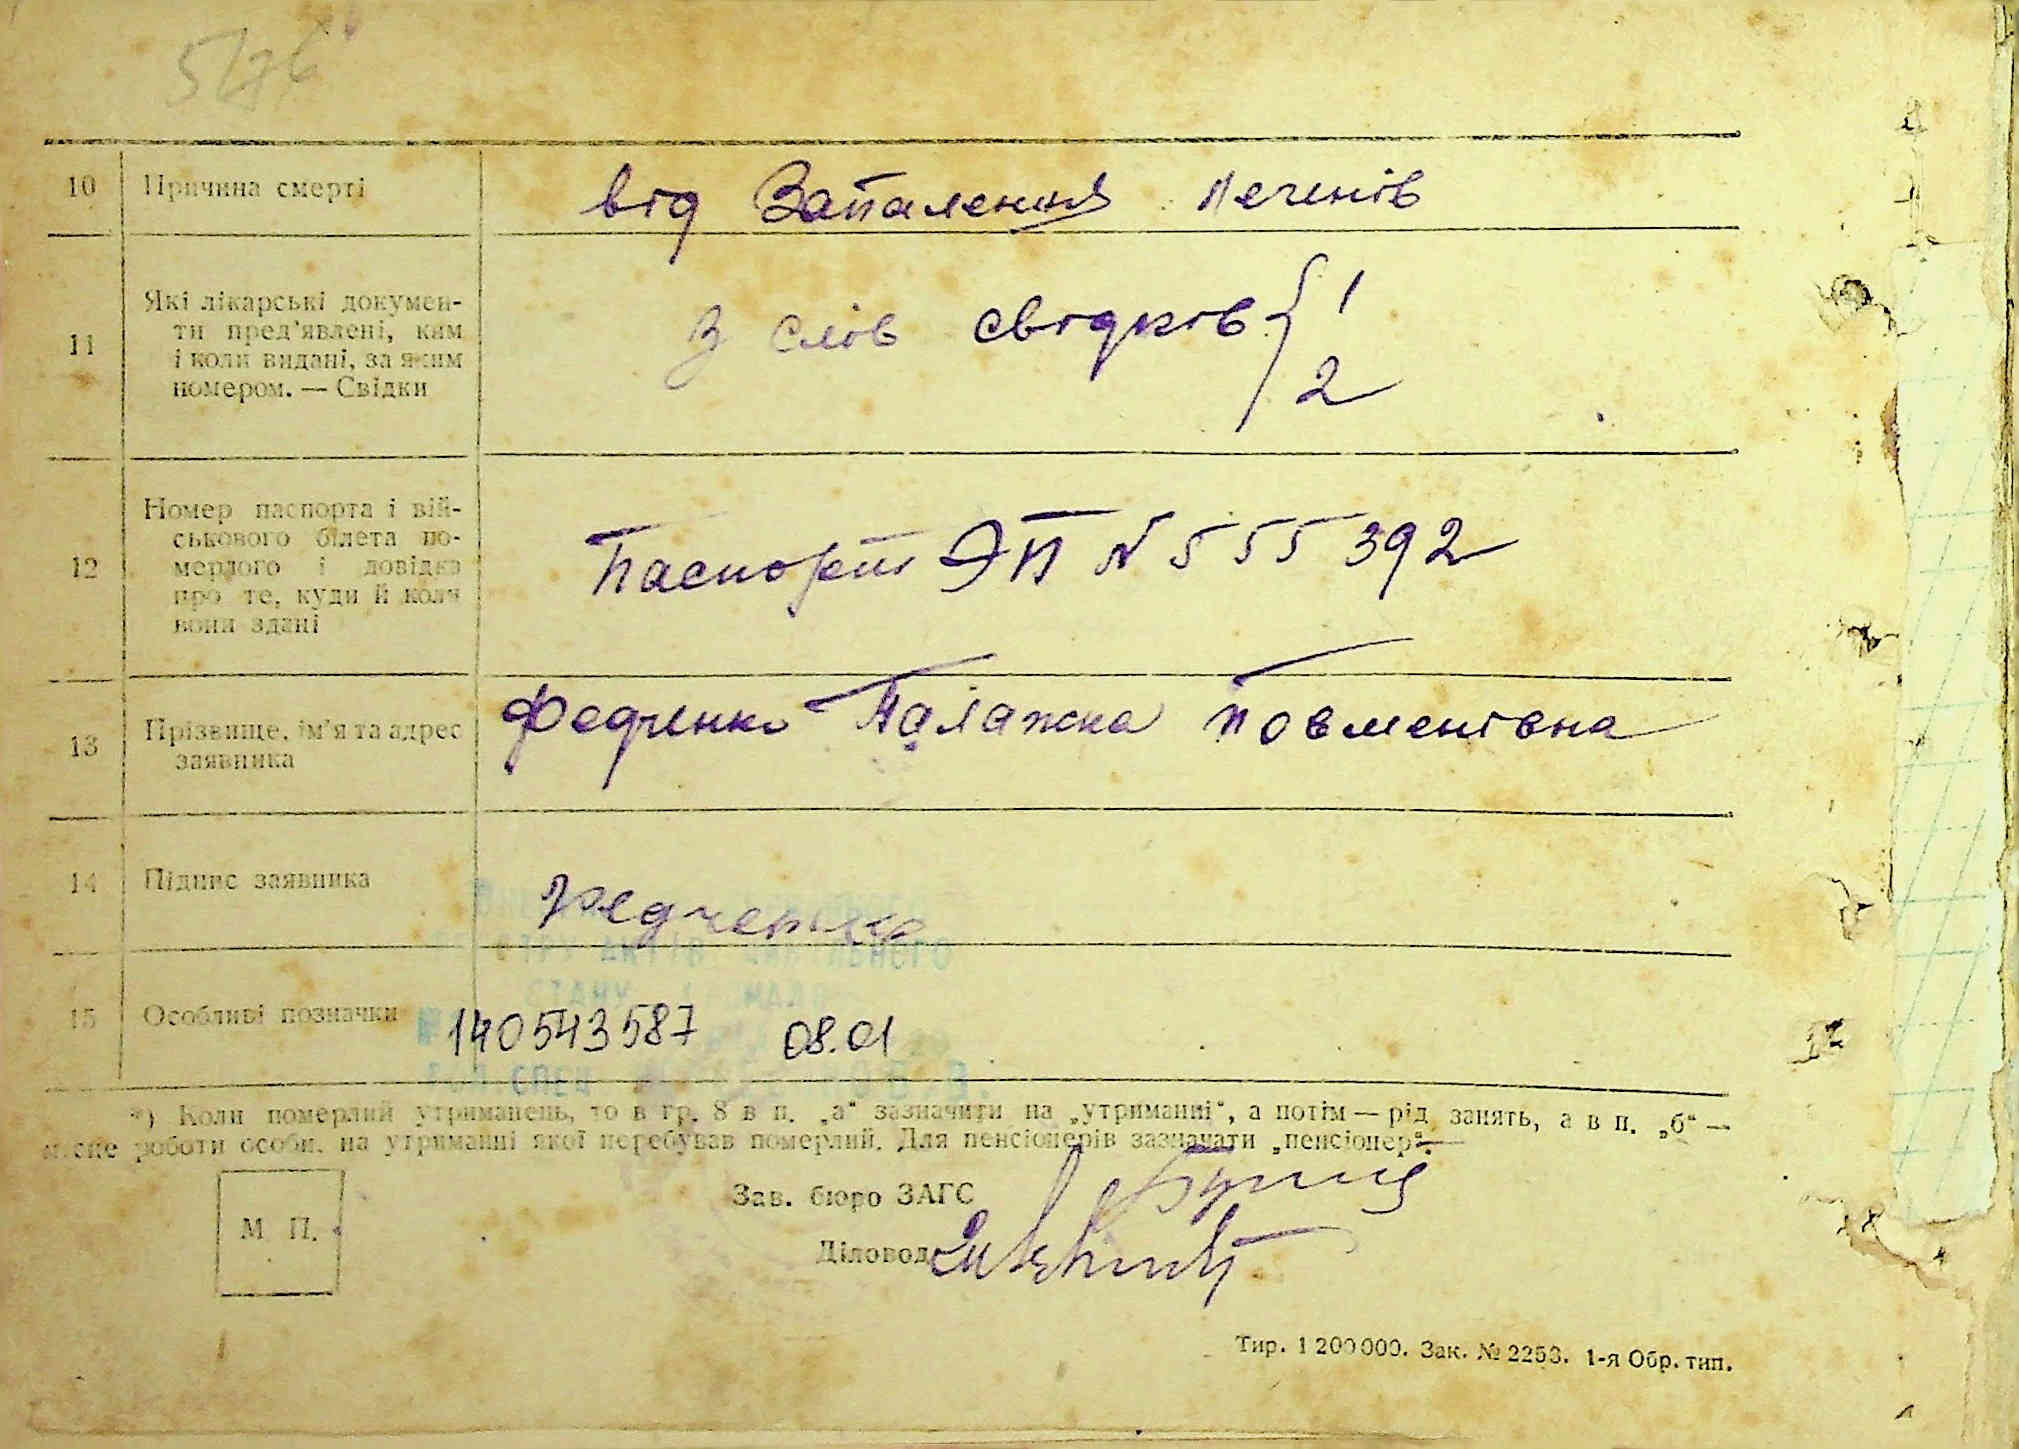 5/76
10 Причина смерті
від Запалення Печенів
11 Які лікарські докумен-
ти пред'явлені, ким
і коли видані, за яким
номером. — Свідки
з слів свідків { 1
2
12 Номер паспорта і вій-
ськового білета по-
мерлого і довідка
про те, куди й коли
вони здані
Паспорт ЭП № 555392
13 Прізвище, ім'я та адрес
заявника
Федченко Палажка Повменівна
14 Підпис заявника
Федченко
АКТІВ ЦИВІЛЬНОГО
СТАНУ
15 Особливі позначки
140543587 08.01
СПЕЦ
*) Коли померлий утриманець, то в гр. 8 в п. „а“ зазначити на „утриманні“, а потім — рід занять, а в п. „б“ —
місце роботи особи, на утриманні якої перебував померлий. Для пенсіонерів зазначати „пенсіонер“.
Зав. бюро ЗАГС
М П.
Діловод
Тир. 1 200 000. Зак. № 2253. 1-я Обр. тип.